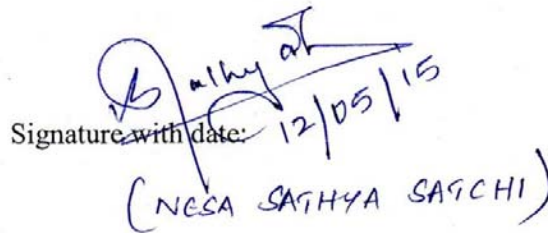 Signature with date: 12/05/15
(NESA SATHYA SATCHI)